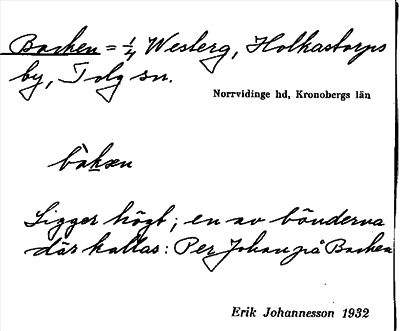 Backen = 1/4 Westerg, Holkastorps
by, Tolg sn.
Norrvidinge hd, Kronobergs län
bàkæn
Ligger högt; en av bönderna
där kallas: Per Johan på Backen
Erik Johannesson 1932